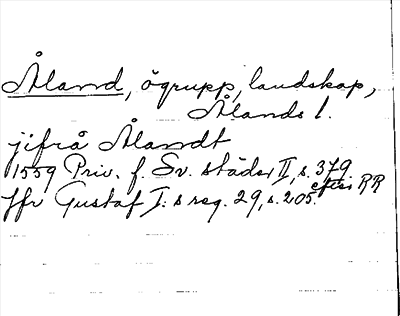 Åland, ögrupp, landskap,
Ålands l.
jifrå Ålandt
1559 Priv. f. Sv. städer II, s. 379
efter RR
Jfr Gustaf I:s reg. 29, s. 205.